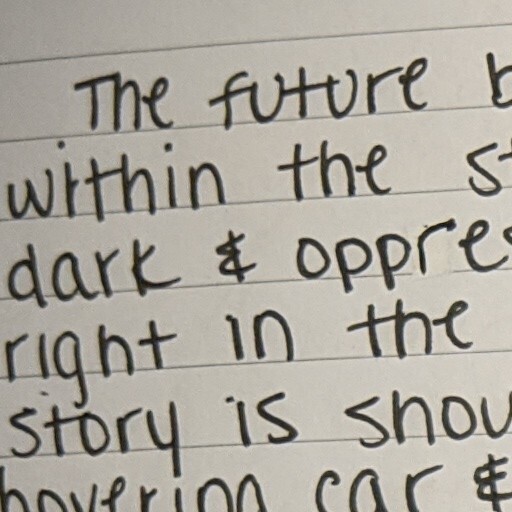 The future
within the
dark & oppre
right in the
story is
hovering car &